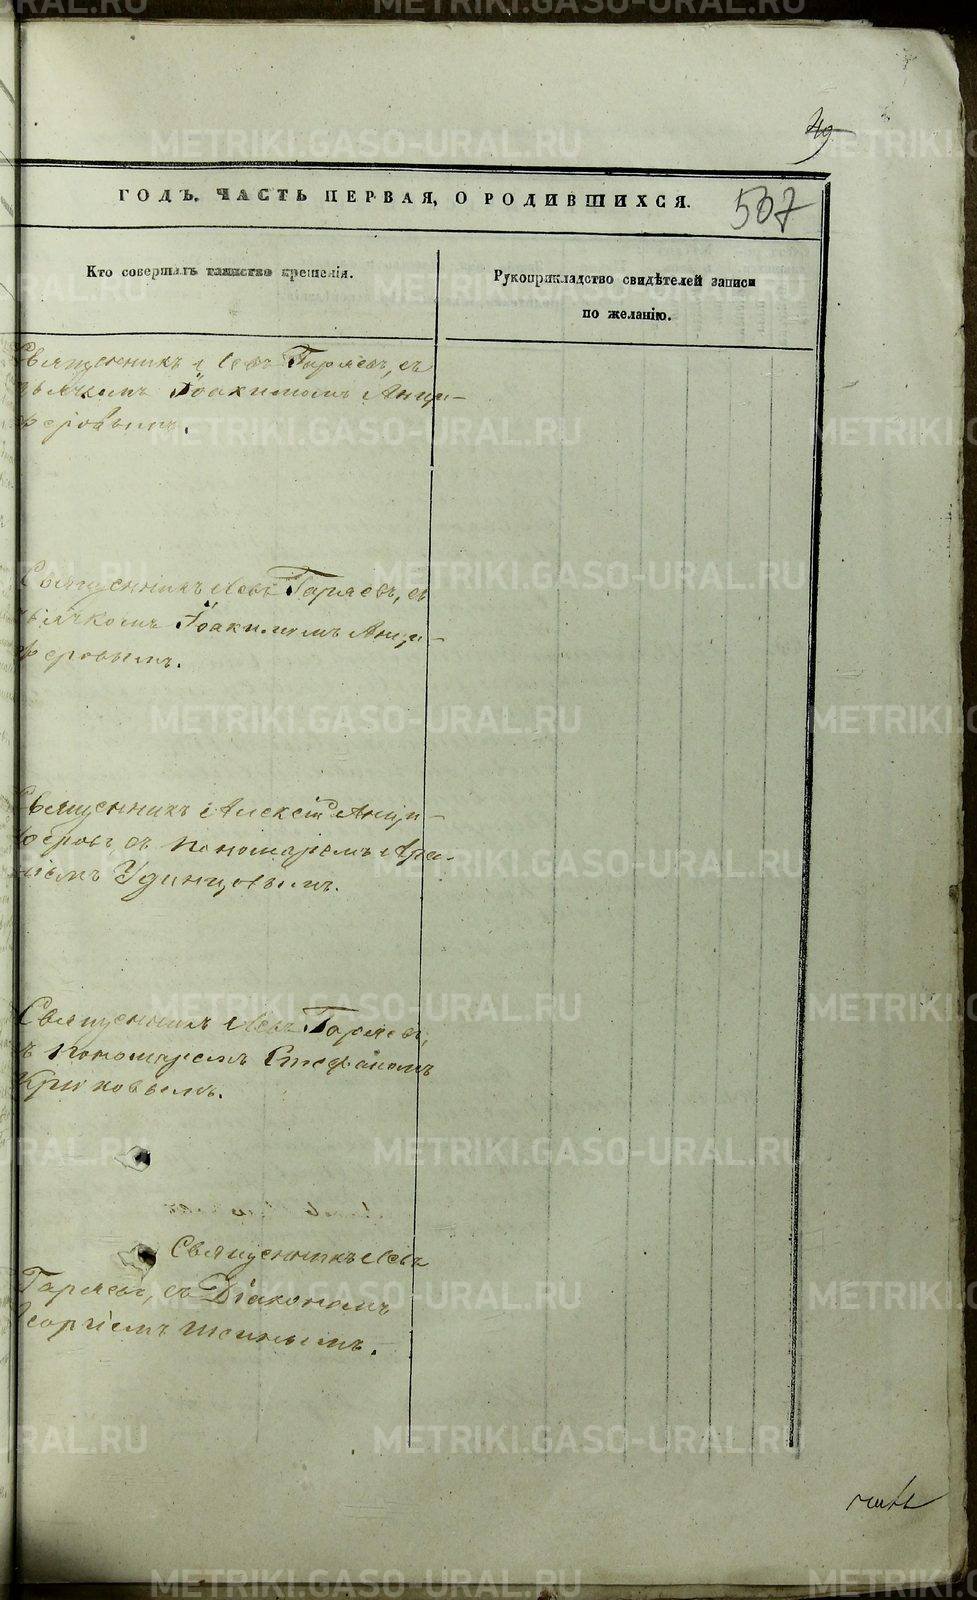 49
ГОДЪ. ЧАСТЬ ПЕРВАЯ, О РОДИВШИХСЯ.
507
Кто совершалъ таинство крещенія.
Рукоприкладство свидѣтелей записи
по желанію.
Священникъ Левъ Гаряевъ, съ
дьячкомъ Іоакимомъ Анци-
феровымъ.
Священникъ Левъ Гаряевъ, съ
дьячкомъ Іоакимомъ Анци-
феровымъ.
Священникъ Алексій Анци-
феровъ съ пономаремъ
Удинцовымъ.
Священникъ Левъ Гаряевъ,
съ пономаремъ Стефаномъ
Крюковымъ.
Священникъ Левъ
Гаряевъ, съ Діакономъ
Георгіемъ
METRIKI.GASO-URAL.RU